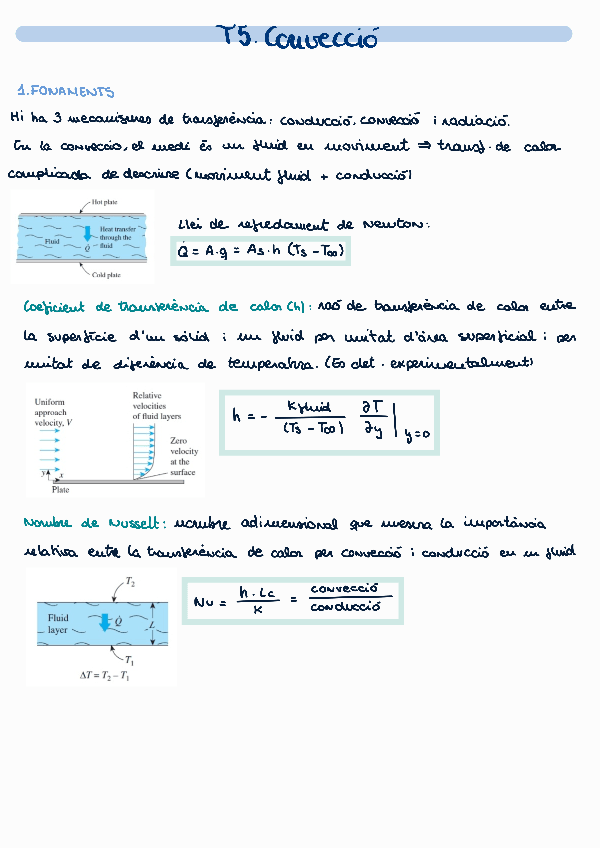 T5. Convecció
1. FONAMENTS
Hi ha 3 mecanismes de transferència: conducció, convecció i radiació.
En la convecció, el medi és un fluid en moviment ⇒ transf. de calor
complicada de descriure (moviment fluid + conducció)
Hot plate
Heat transfer
through the
fluid
Fluid
Q̇
Cold plate
Llei de refredament de Newton:
Q̇ = A·q = As·h (Ts - T∞)
Coeficient de transferència de calor (h): raó de transferència de calor entre
la superfície d'un sòlid i un fluid per unitat d'àrea superficial i per
unitat de diferència de temperatura. (Es det. experimentalment)
Uniform
approach
velocity, V
Relative
velocities
of fluid layers
Zero
velocity
at the
surface
y
x
Plate
h = - K fluid / (Ts - T∞) ∂T/∂y | y=0
Nombre de Nusselt: nombre adimensional que mesura la importància
relativa entre la transferència de calor per convecció i conducció en un fluid
T2
Fluid
layer
Q̇
L
T1
ΔT = T2 – T1
Nu = h·Lc / K = convecció / conducció